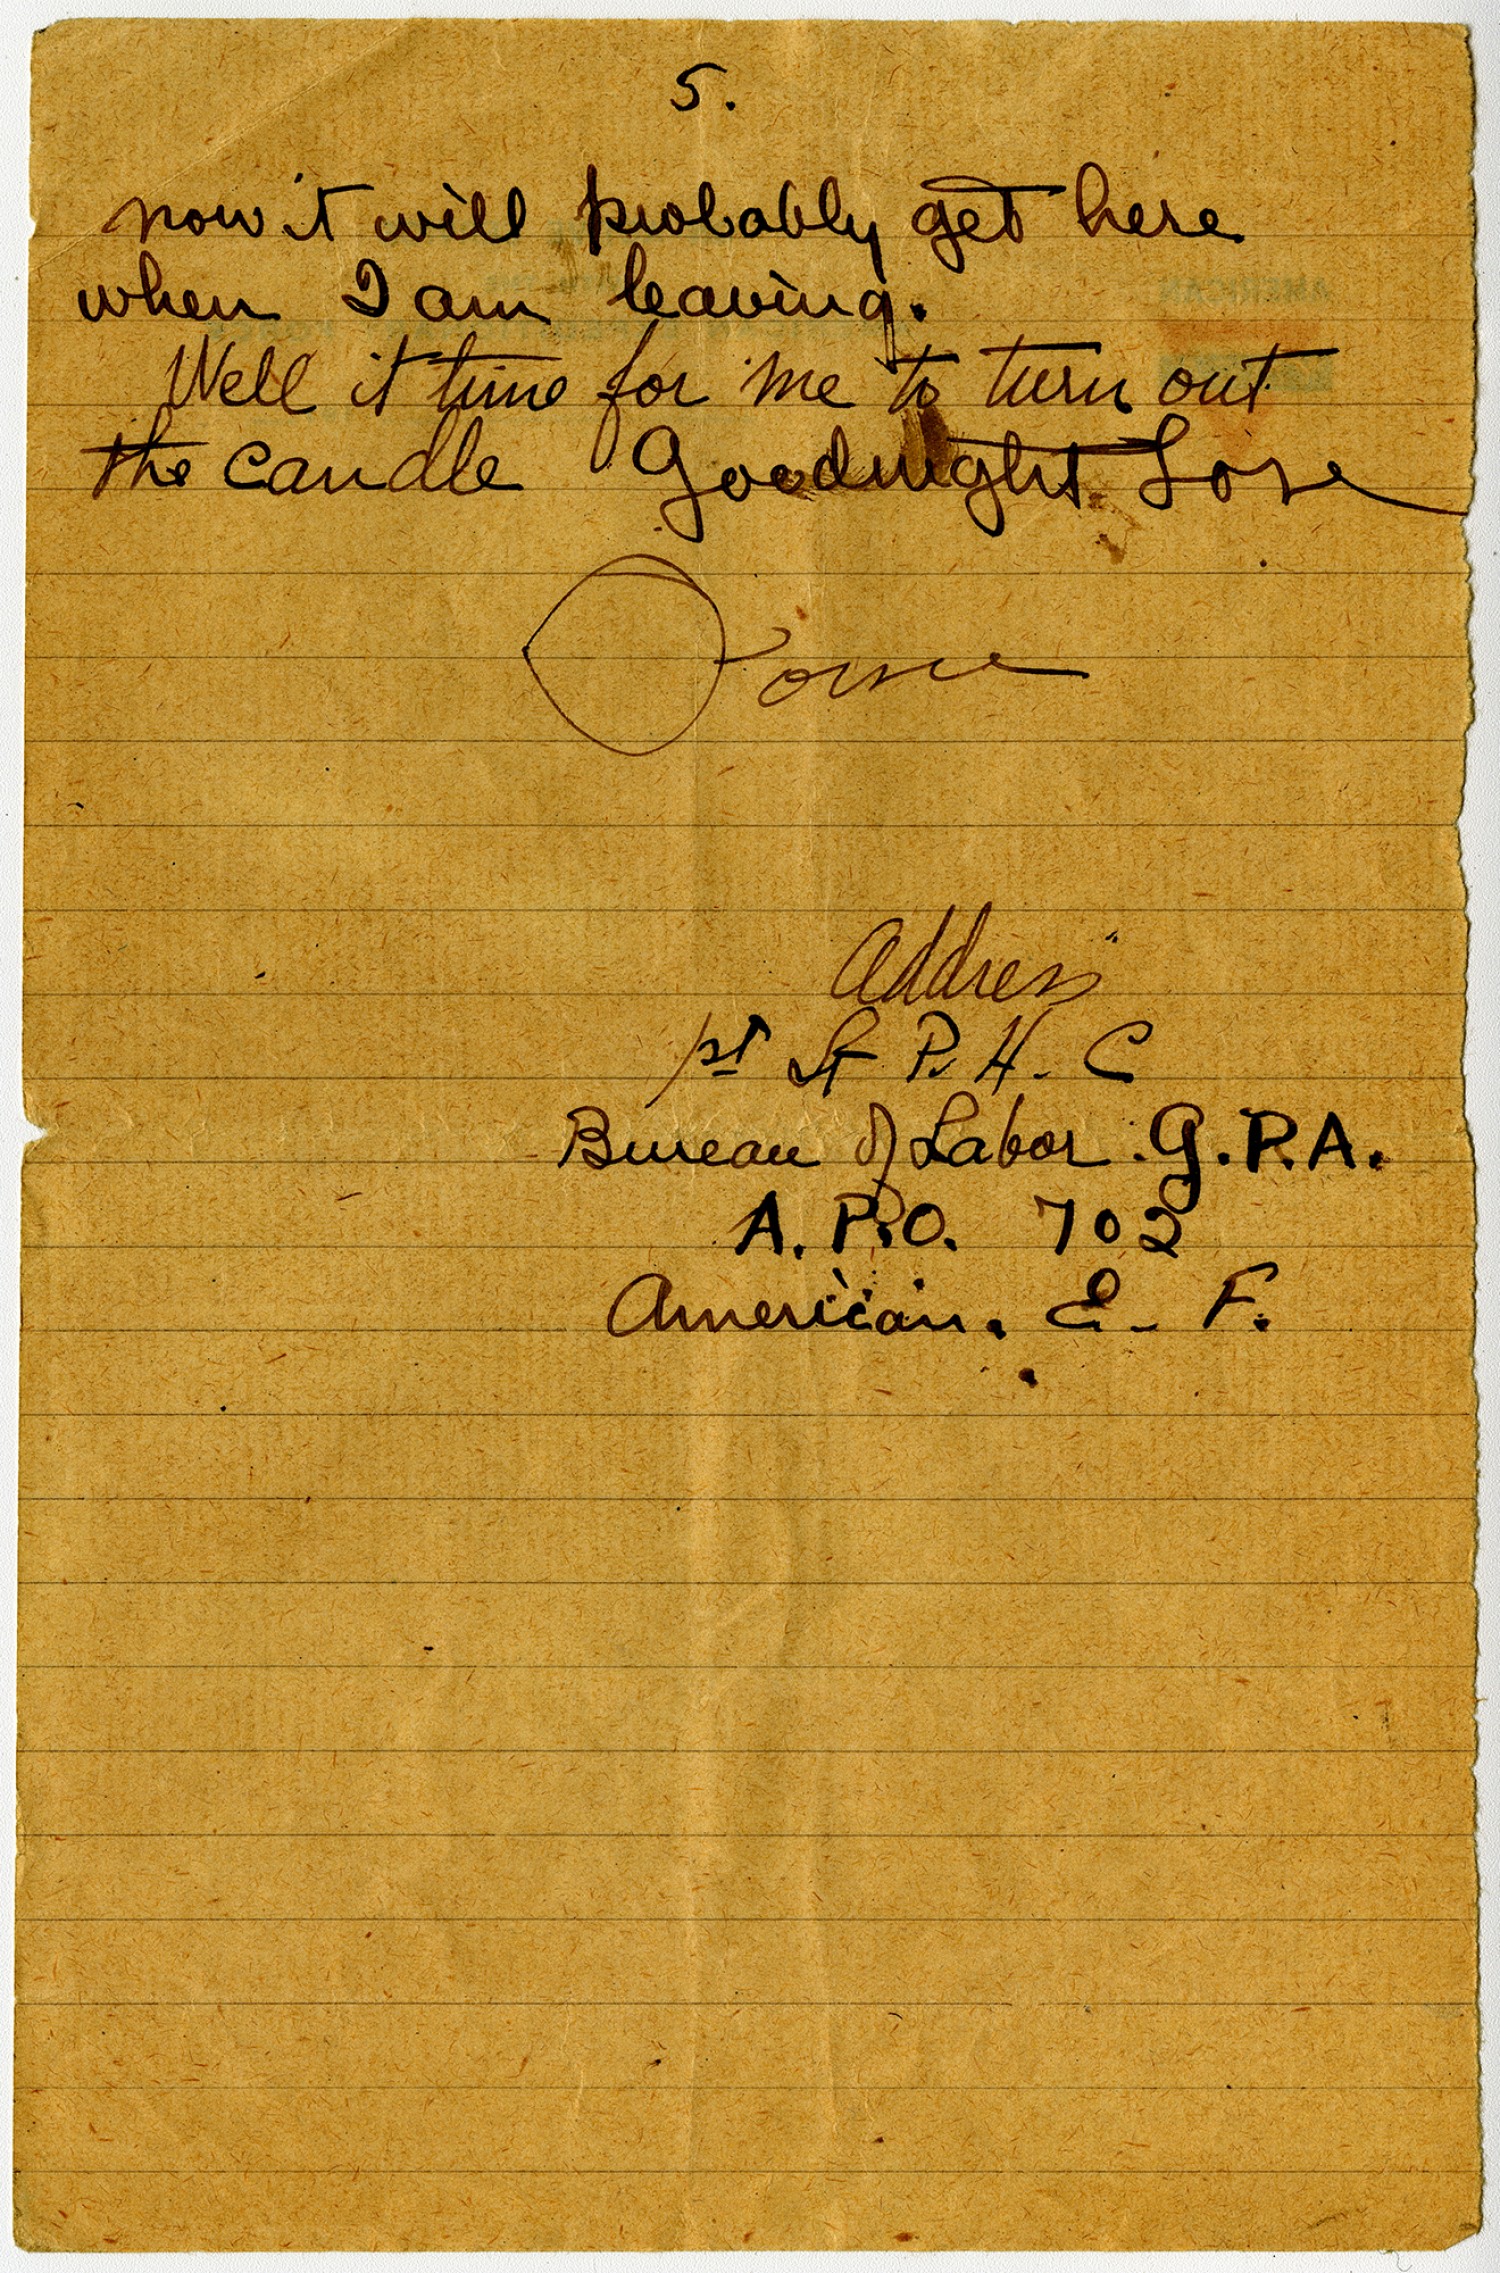 5.
now it will probably get here
when I am leaving.
Well it time for me to turn out
the candle Goodnight Love
Address
1st Lt P. H. C
Bureau of Labor. G.P.A.
A.P.O. 702
American. E. F.
AMERICAN